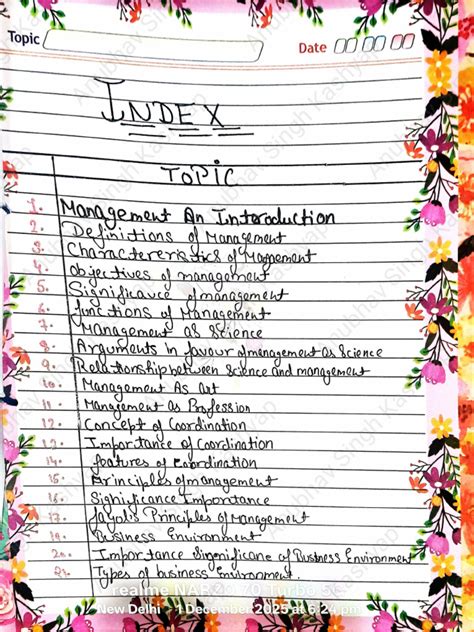 Topic
Date
INDEX
TOPIC
1. Management An Introduction
2. Definitions of Management
3. Characterteristics of Management
4. objectives of management
5. Significance of management
6. functions of Management
7. Management as Science
8. Arguments in favour of management as Science
9. Relationship between Science and management
10. Management As Art
11. Management as Profession
12. Concept of Coordination
13. Importance of Coordination
14. features of Coordination
15. Principles of management
16. Significance Importance
17. fayol's Principles of Management
19. Business Environment
20. Importance Significane of Business Environment
21. Types of business Environment.
realme NARZO 70 Turbo 5G
New Delhi 1 December 2025 at 6:24 pm
Anubhav Singh Kashyap